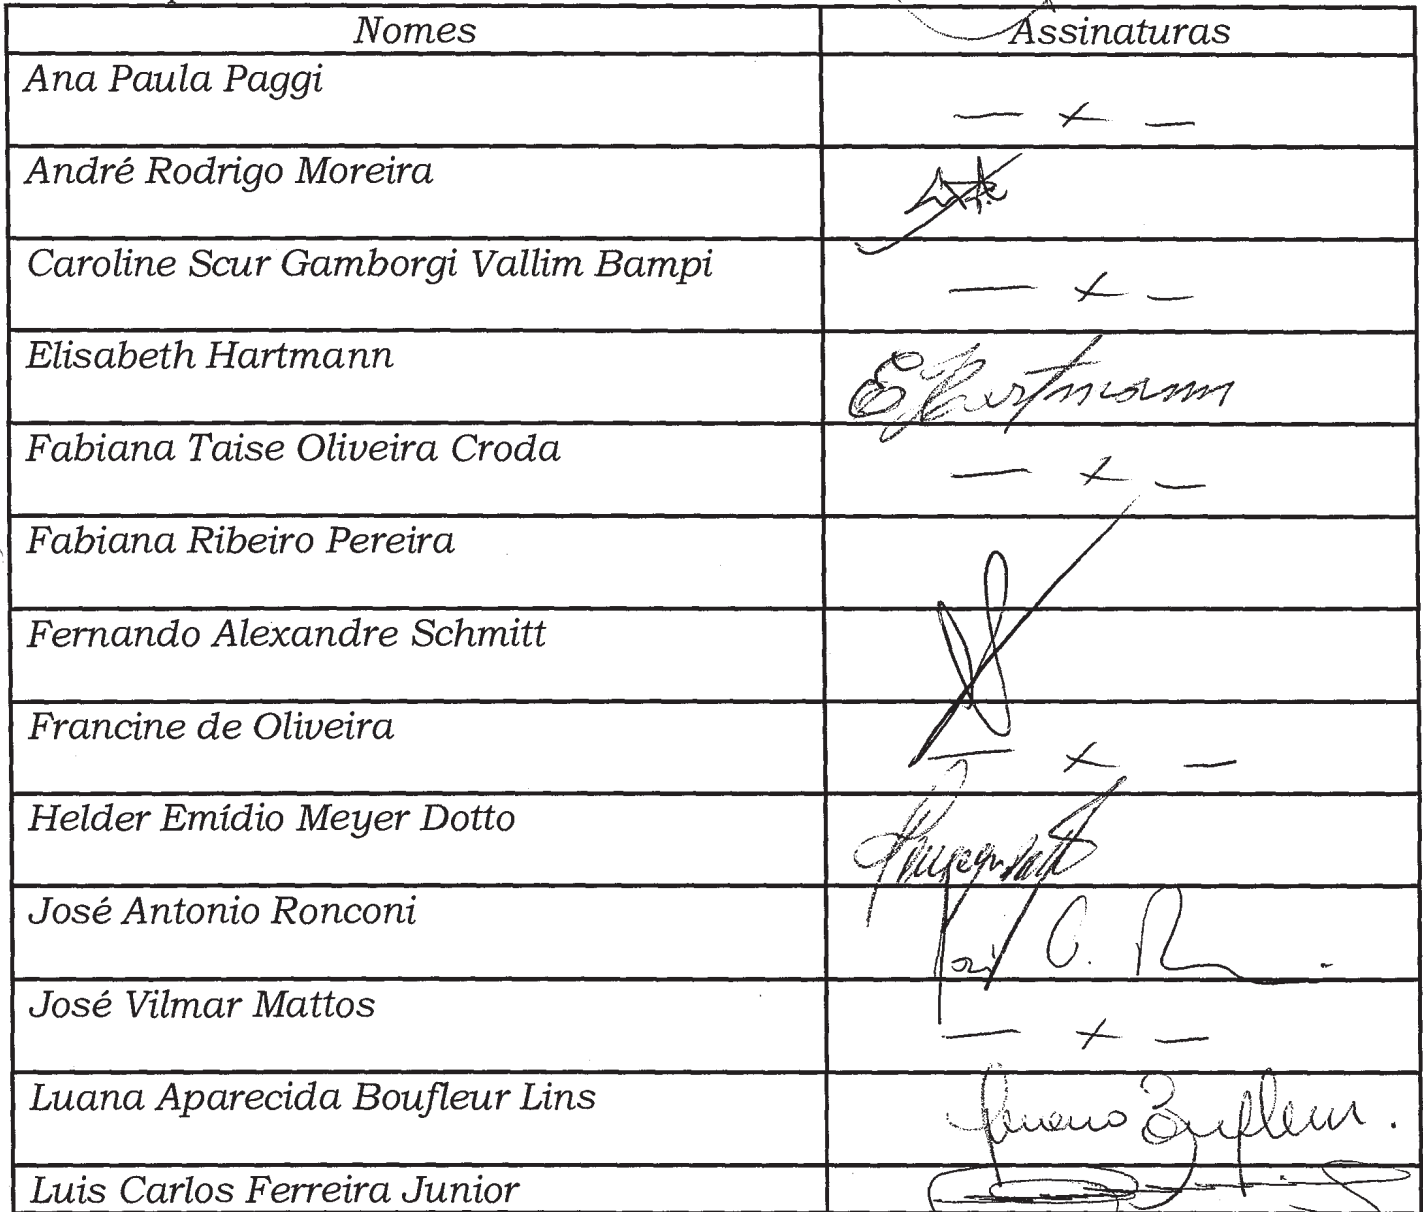 Nomes Assinaturas
Ana Paula Paggi — x —
André Rodrigo Moreira
Caroline Scur Gamborgi Vallim Bampi — x —
Elisabeth Hartmann EHartmann
Fabiana Taise Oliveira Croda — x —
Fabiana Ribeiro Pereira
Fernando Alexandre Schmitt
Francine de Oliveira — x —
Helder Emídio Meyer Dotto
José Antonio Ronconi José A. R
José Vilmar Mattos — x —
Luana Aparecida Boufleur Lins Luana Boufleur.
Luis Carlos Ferreira Junior